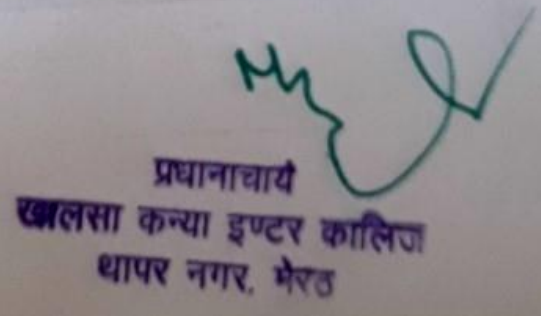 प्रधानाचार्य
खालसा कन्या इण्टर कालिज
थापर नगर, मेरठ